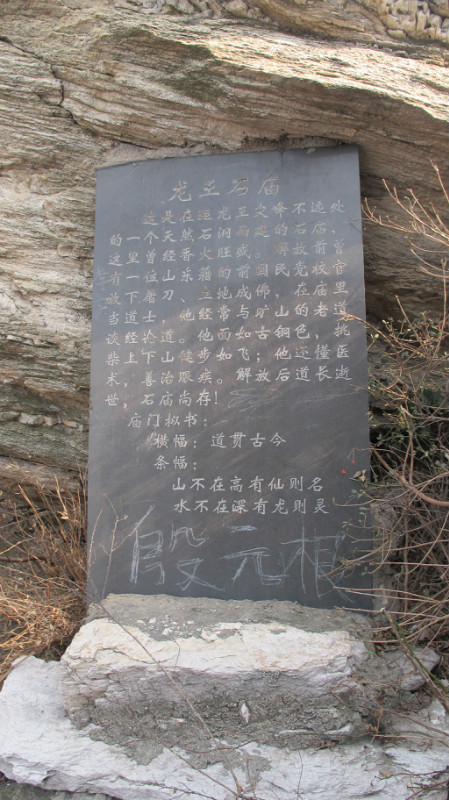 龙王石庙
这是在距龙王尖峰不远处、
的一个天然石洞而建的石庙。
这里曾经香火旺盛。解放前曾
有一位山东籍的国民党校官
放下屠刀、立地成佛,在庙里
当道士,他经常与旷山的老道
谈经论道。他面如古铜色,挑
柴上下山健步如飞;他还懂医
术,善治眼疾。解放后道长逝
世,石庙尚存!
庙门拟书:
横幅:道贯古今
条幅:
山不在高有仙则名
水不在深有龙则灵
殷元根